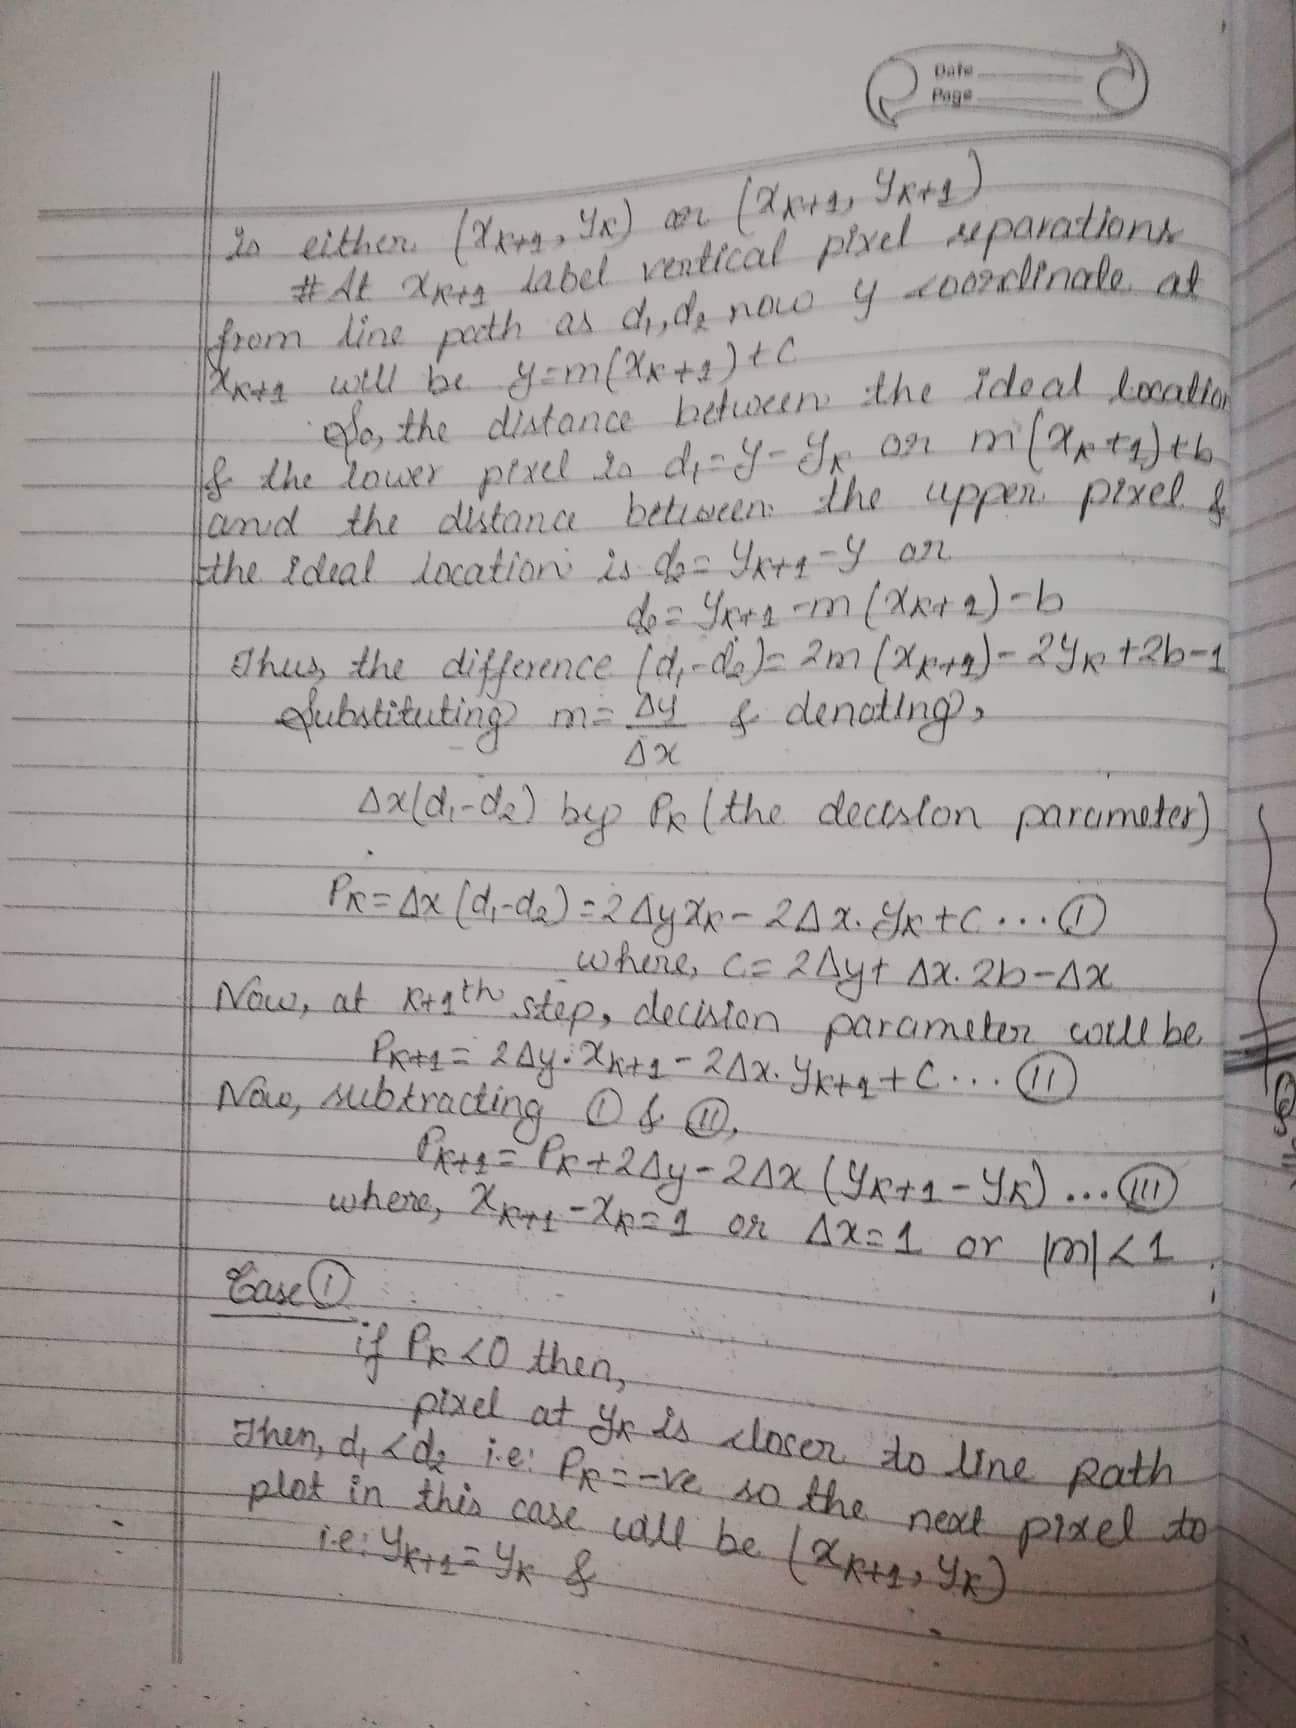 Date
Page
is either (xₖ₊₁, yₖ) or (xₖ₊₁, yₖ₊₁)
# At xₖ₊₁ label vertical pixel separations
from line path as d₁, d₂ now y coordinate at
xₖ₊₁ will be y=m(xₖ+1)+c
So, the distance between the ideal location
& the lower pixel is d₁=y-yₖ or m(xₖ+1)+b
and the distance between the upper pixel &
the ideal location is d₂=yₖ₊₁-y or
d₂=yₖ₊₁-m(xₖ+1)-b
Thus, the difference (d₁-d₂)=2m(xₖ₊₁)-2yₖ+2b-1
Substituting m=Δy/Δx & denoting,
Δx(d₁-d₂) by Pₖ (the decision parameter)
Pₖ=Δx(d₁-d₂)=2Δyxₖ-2Δx.yₖ+c...Ⓘ
where, c=2Δy+Δx.2b-Δx
Now, at k+1th step, decision parameter will be
Pₖ₊₁=2Δy.xₖ₊₁-2Δx.yₖ₊₁+c...(II)
Now, subtracting Ⓘ & (II),
Pₖ₊₁=Pₖ+2Δy-2Δx(yₖ₊₁-yₖ)...(III)
where, xₖ₊₁-xₖ=1 or Δx=1 or |m|<1
Case Ⓘ
if Pₖ<0 then,
pixel at yₖ is closer to line path
Then, d₁<d₂ i.e: Pₖ=-ve so the next pixel to
plot in this case will be (xₖ₊₁, yₖ)
i.e: yₖ₊₁=yₖ &